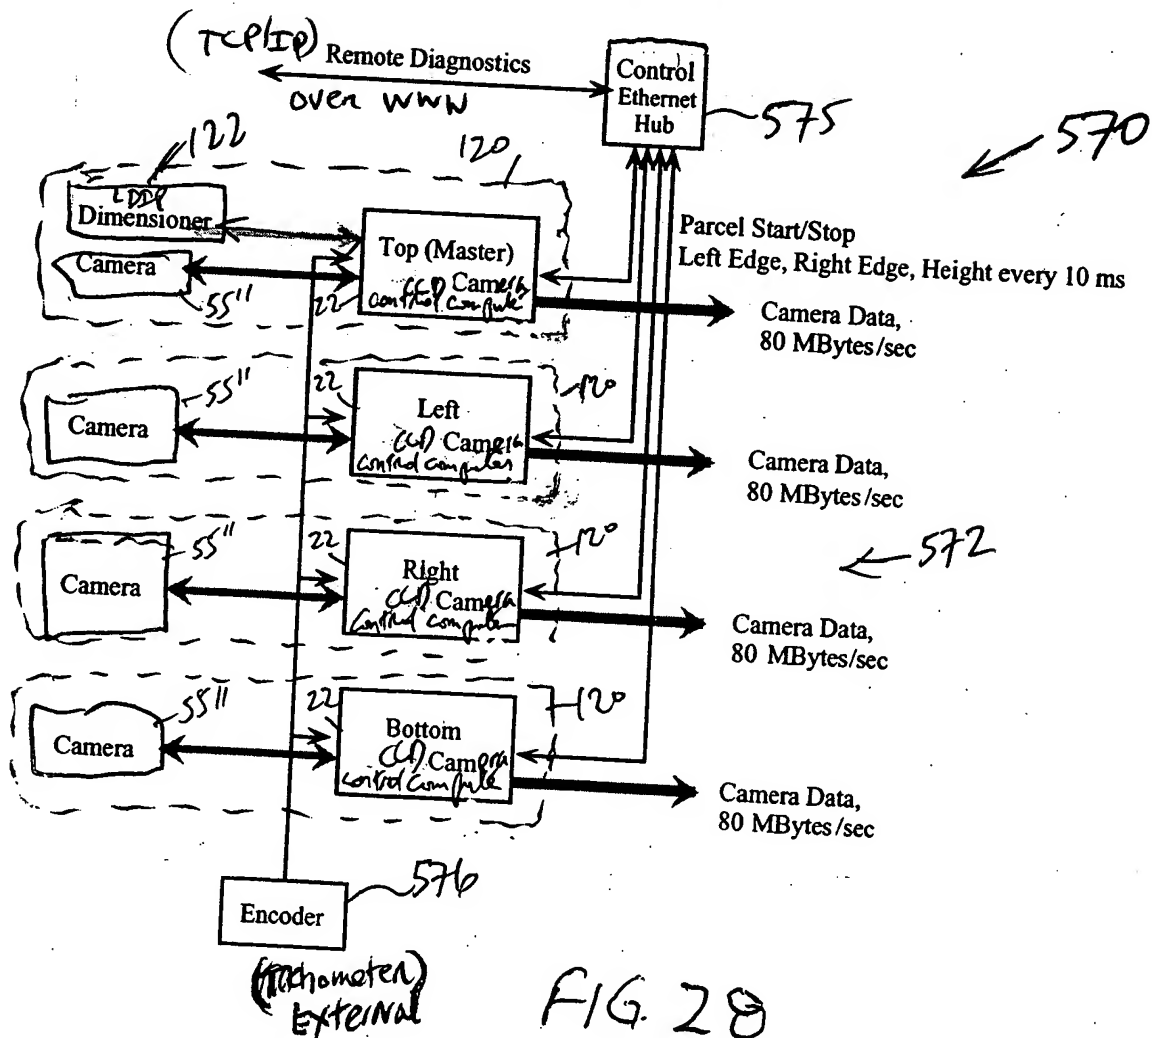 (TCP/IP)
Remote Diagnostics
over WWW
Control
Ethernet
Hub
575
570
122
120
LDIP
Dimensioner
Camera
55"
Top (Master)
22 CCD Camera
control compute
Parcel Start/Stop
Left Edge, Right Edge, Height every 10 ms
Camera Data,
80 MBytes/sec
55"
Camera
22
Left
CCD Camera
control computer
120
Camera Data,
80 MBytes/sec
55"
Camera
22
Right
CCD Camera
control computer
120
572
Camera Data,
80 MBytes/sec
55"
Camera
22
Bottom
CCD Camera
control compute
120
Camera Data,
80 MBytes/sec
Encoder
576
(Tachometer)
External
FIG. 28